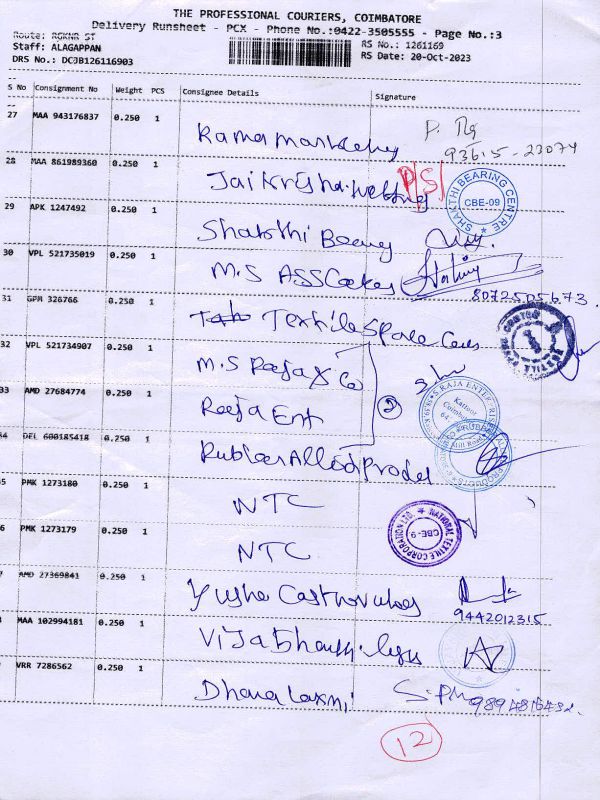 THE PROFESSIONAL COURIERS, COIMBATORE
Delivery Runsheet - PCX - Phone No.:0422-3505555 - Page No.:3
Route: RGKNR ST
Staff: ALAGAPPAN
DRS No.: DC3B126116903
RS No.: 1261169
RS Date: 20-Oct-2023
S No Consignment No Weight PCS Consignee Details Signature
27 MAA 943176837 0.250 1
93615-23074
28 MAA 861989360 0.250 1 Jai Krishna
P/S
SHAKTHI BEARING CENTRE
CBE-09
29 APK 1247492 0.250 1 Shakthi
30 VPL 521735019 0.250 1 M.S ASS Cakes
8072505673.
31 GPM 326766 0.250 1 Textile Space
32 VPL 521734907 0.250 1 M.S Raja & Co
33 AMD 27684774 0.250 1 Raja Ent
2
S.RAJA ENTER
34 DEL 600185418 0.250 1 Rubber Allied
35 PMK 1273180 0.250 1 NTC
NATIONAL TEXTILE CORPORATION LTD.
CBE-9
36 PMK 1273179 0.250 1 NTC
AMD 27369841 0.250 1
9442012315
MAA 102994181 0.250 1
VRR 7286562 0.250 1 Dhanalaxmi
12